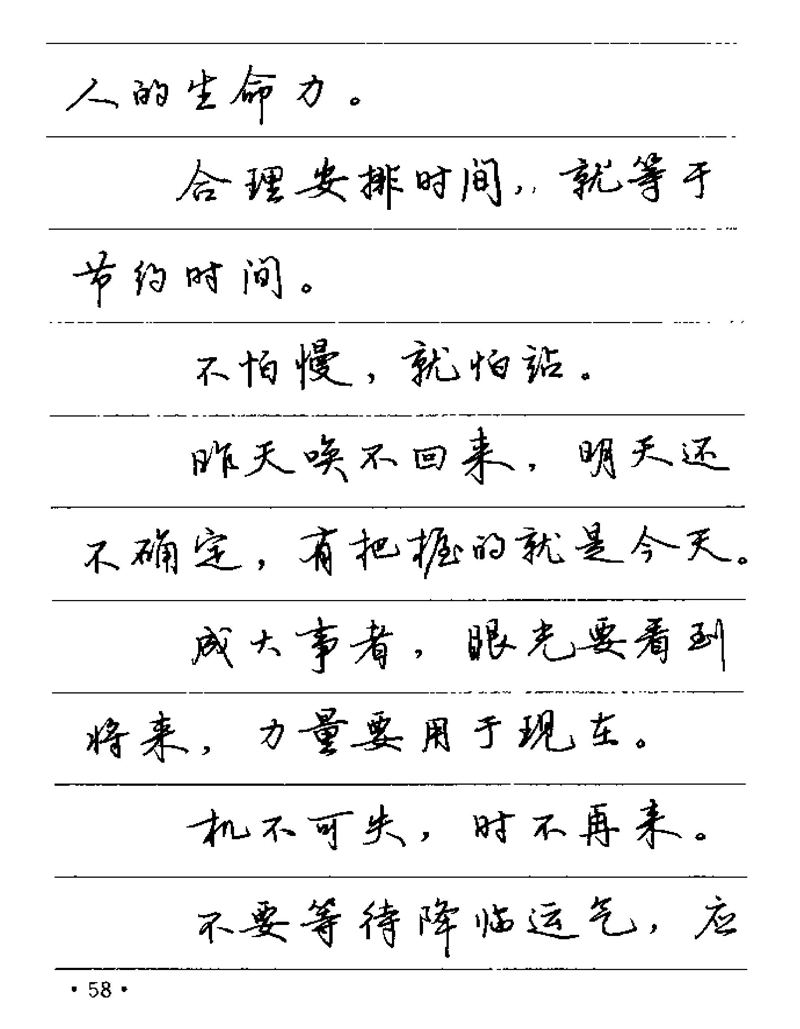 人的生命力。
合理安排时间，就等于
节约时间。
不怕慢，就怕站。
昨天唤不回来，明天还
不确定，有把握的就是今天。
成大事者，眼光要看到
将来，力量要用于现在。
机不可失，时不再来。
不要等待降临运气，应
·58·